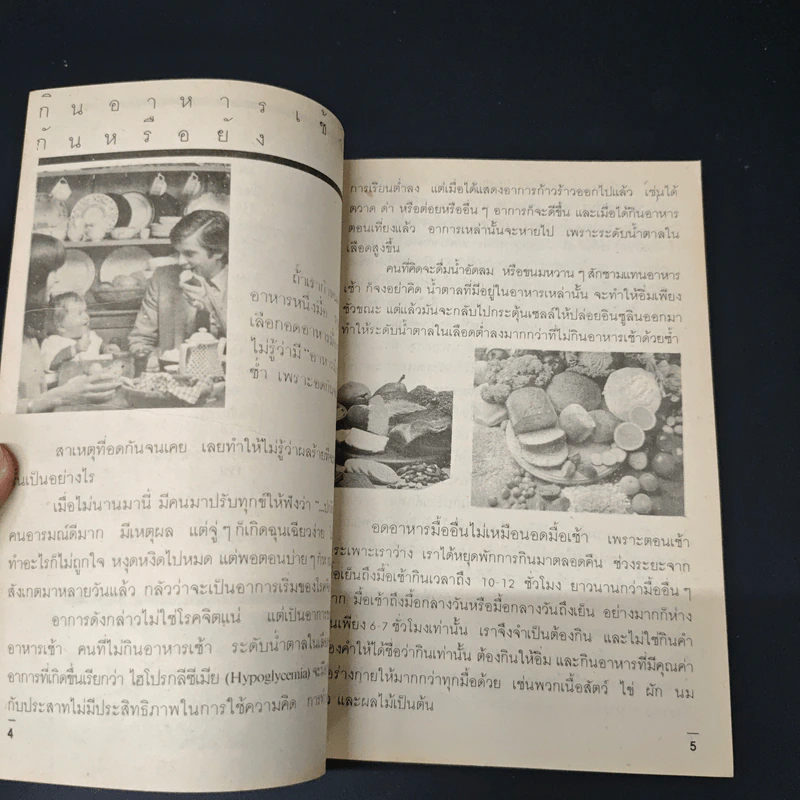 กินอาหารเช้า
กันหรือยัง
ถ้าเรา
อาหารหนึ่งมื้อ
เลือกอดอาหาร
ไม่รู้ว่ามี
ซ้ำ เพราะอด
สาเหตุที่อดกันจนเคย เลยทำให้ไม่รู้ว่าผลร้าย
เป็นอย่างไร
เมื่อไม่นานมานี้ มีคนมาปรับทุกข์ให้ฟังว่า
คนอารมณ์ดีมาก มีเหตุผล แต่จู่ๆก็เกิดฉุนเฉียวง่าย
ทำอะไรก็ไม่ถูกใจ หงุดหงิดไปหมด แต่พอตอนบ่ายๆ
สังเกตมาหลายวันแล้ว กลัวว่าจะเป็นอาการเริ่มของโรค
อาการดังกล่าวไม่ใช่โรคจิตแน่ แต่เป็นอาการ
อาหารเช้า คนที่ไม่กินอาหารเช้า ระดับน้ำตาลใน
อาการที่เกิดขึ้นเรียกว่า ไฮโปรกลีซีเมีย (Hypoglycemia)
กับประสาทไม่มีประสิทธิภาพในการใช้ความคิด
4
การเรียนต่ำลง แต่เมื่อได้แสดงอาการก้าวร้าวออกไปแล้ว เช่นได้
ตวาด ด่า หรือต่อยหรืออื่นๆ อาการก็จะดีขึ้น และเมื่อได้กินอาหาร
ตอนเที่ยงแล้ว อาการเหล่านั้นจะหายไป เพราะระดับน้ำตาลใน
เลือดสูงขึ้น
คนที่คิดจะดื่มน้ำอัดลม หรือขนมหวานๆสักชามแทนอาหาร
เช้า ก็จงอย่าคิด น้ำตาลที่มีอยู่ในอาหารเหล่านั้น จะทำให้อิ่มเพียง
ชั่วขณะ แต่แล้วมันจะกลับไปกระตุ้นเซลล์ให้ปล่อยอินซูลินออกมา
ทำให้ระดับน้ำตาลในเลือดต่ำลงมากกว่าที่ไม่กินอาหารเช้าด้วยซ้ำ
อดอาหารมื้ออื่นไม่เหมือนอดมื้อเช้า เพราะตอนเช้า
กระเพาะเราว่าง เราได้หยุดพักการกินมาตลอดคืน ช่วงระยะจาก
มื้อเย็นถึงมื้อเช้ากินเวลาถึง 10-12 ชั่วโมง ยาวนานกว่ามื้ออื่นๆ
มื้อเช้าถึงมื้อกลางวันหรือมื้อกลางวันถึงเย็น อย่างมากก็ห่าง
เพียง 6-7 ชั่วโมงเท่านั้น เราจึงจำเป็นต้องกิน และไม่ใช่กินคำ
สองคำให้ได้ชื่อว่ากินเท่านั้น ต้องกินให้อิ่ม และกินอาหารที่มีคุณค่า
ร่างกายให้มากกว่าทุกมื้อด้วย เช่นพวกเนื้อสัตว์ ไข่ ผัก นม
และผลไม้เป็นต้น
5